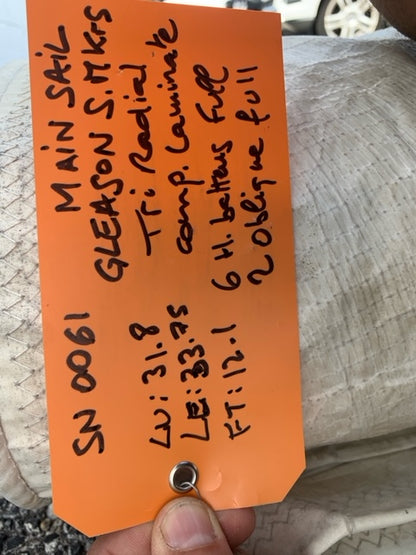 MAIN SAIL
GLEASON S.MKrS
Tri Radial
comp. Laminate
6 H. battens Full
2 Oblique full
SN 0061
LU: 31.8
LE: 33.75
FT: 12.1